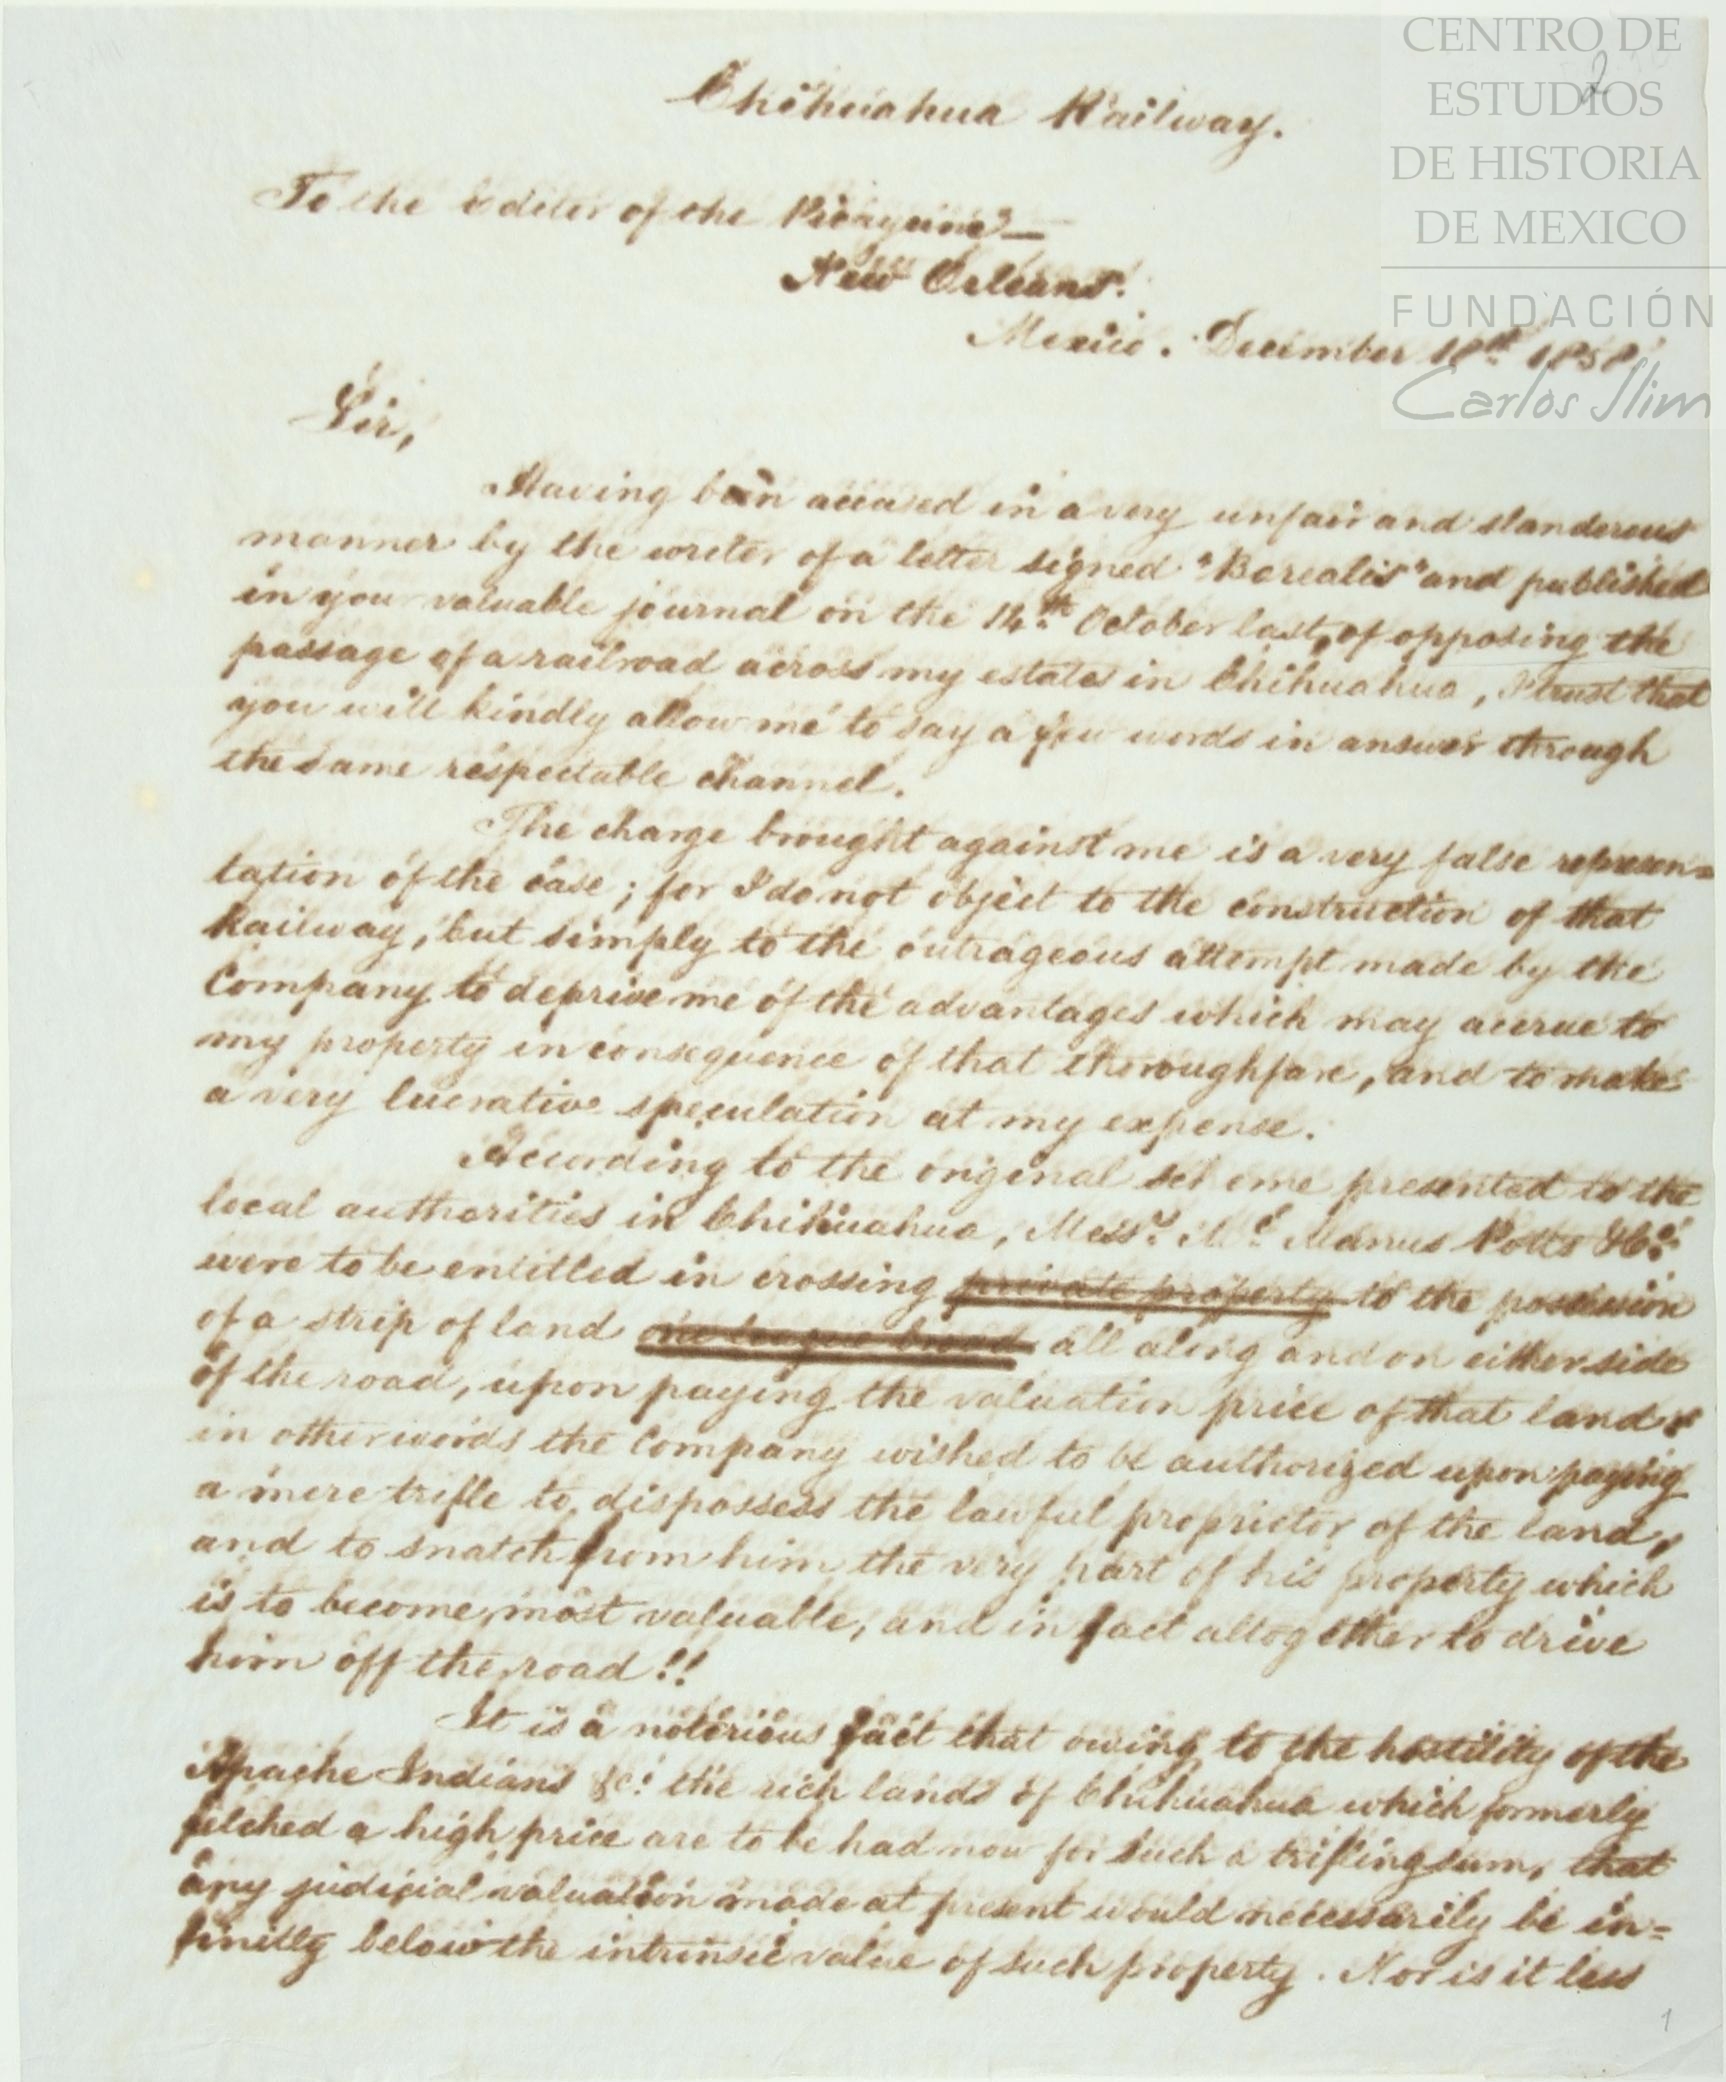 CENTRO DE
ESTUDIOS
DE HISTORIA
DE MEXICO
FUNDACIÓN
Carlos Slim
2
Chihuahua Railway.
To the Editor of the Picayune—
New Orleans.
Mexico. December 18th 1858
Sir,
Having been accused in a very unfair and slanderous
manner by the writer of a letter signed "Borealis" and published
in your valuable journal on the 14th October last, of opposing the
passage of a railroad across my estates in Chihuahua, I trust that
you will kindly allow me to say a few words in answer through
the same respectable channel.
The charge brought against me is a very false represen=
tation of the case; for I do not object to the construction of that
Railway, but simply to the outrageous attempt made by the
Company to deprive me of the advantages which may accrue to
my property in consequence of that thoroughfare, and to make
a very lucrative speculation at my expense.
According to the original scheme presented to the
local authorities in Chihuahua, Messrs. Mc. Manus Potts & Co.
were to be entitled in crossing private property to the possession
of a strip of land one league broad all along and on either side
of the road, upon paying the valuation price of that land;
in other words the Company wished to be authorized upon paying
a mere trifle to dispossess the lawful proprietor of the land,
and to snatch from him the very part of his property which
is to become most valuable, and in fact altogether to drive
him off the road!!
It is a notorious fact that owing to the hostility of the
Apache Indians &c. the rich lands of Chihuahua which formerly
fetched a high price are to be had now for such a trifling sum, that
any judicial valuation made at present would necessarily be in=
finitly below the intrinsic value of such property. Nor is it less
1